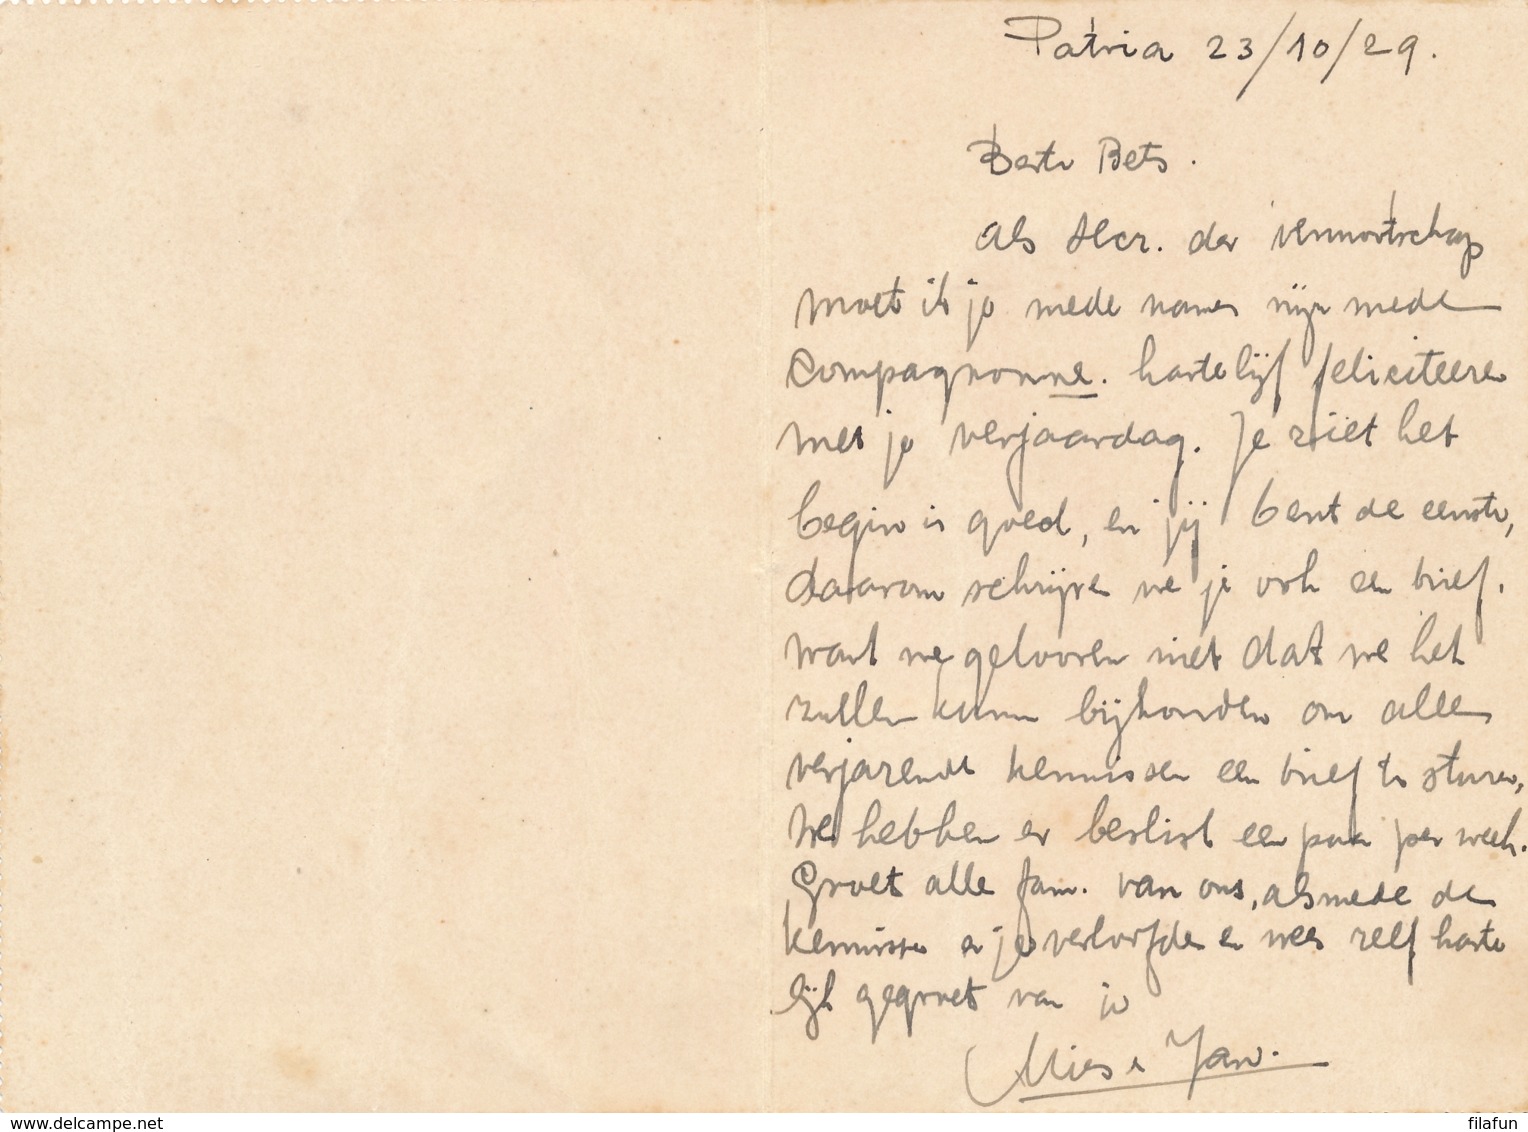 Patria 23/10/29.
Beste Bets.
Als secr. der vennootschap
moet ik je mede namens mijn mede
compagnonne. hartelijk feliciteeren
met je verjaardag. Je ziet het
begin is goed, en jij bent de eerste,
daarom schrijven we je ook een brief.
want we gelooven niet dat we het
zullen kunn bijhouden om alle
verjarende kennissen een brief te sturen,
We hebben er beslist een paar per week.
Groet alle fam. van ons, alsmede de
kennissen en je verloofde en wees zelf harte
lijk gegroet van je
Mies en Jan.
www.delcampe.net
filafun